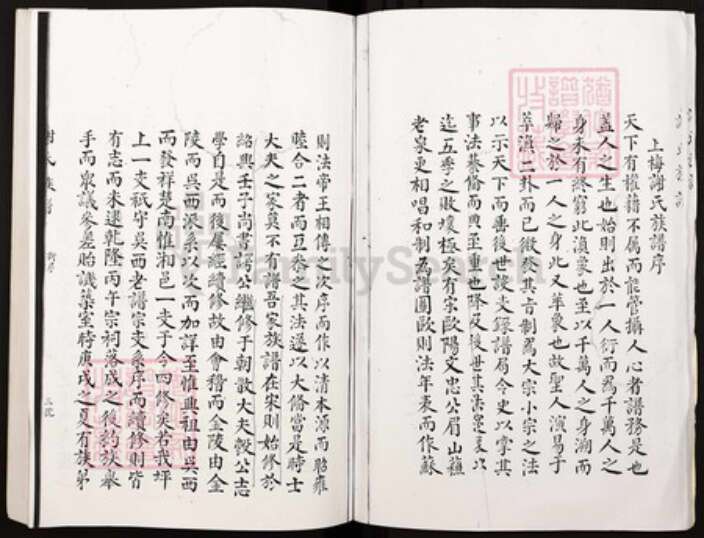 上梅謝氏族譜序
天下有權藉不屬而能管攝人心者譜務是也
蓋人之生也始則出於一人衍而為千萬人之
身未有終窮此渙象也至以千萬人之身溯而
歸之於一人之身此又萃象也故聖人演易于
萃渙二卦而已微於其旨制為大宗小宗之法
以示天下而垂後世設支錄譜局令史以掌其
事法綦俻而典至重也降及後世其法寖衰以
迄五季之敗壞極矣有宋歐陽文忠公眉山蘓
老泉更相唱和制為譜圖歐則法年表而作蘇
則法帝王相傳之次序而作以清本源而昭雍
睦合二者而互叅之其法遂以大俻當是時士
大夫之家莫不有譜吾家族譜在宋則始修於
紹興壬子尚書諤公繼修于朝散大夫穀公志
學自是而後屢經續修故由會稽而金陵由金
陵而吳西派系以次而加詳至惟興祖由吳西
而發祥楚南惟湘邑一支于今四修矣若我坪
上一支祇守吳西老譜宗支叠序而續修則皆
有志而未逮乾隆丙午宗祠落成之後約族舉
手而衆議參差貽譏築室特庚戌之夏有族弟
FamilySearch